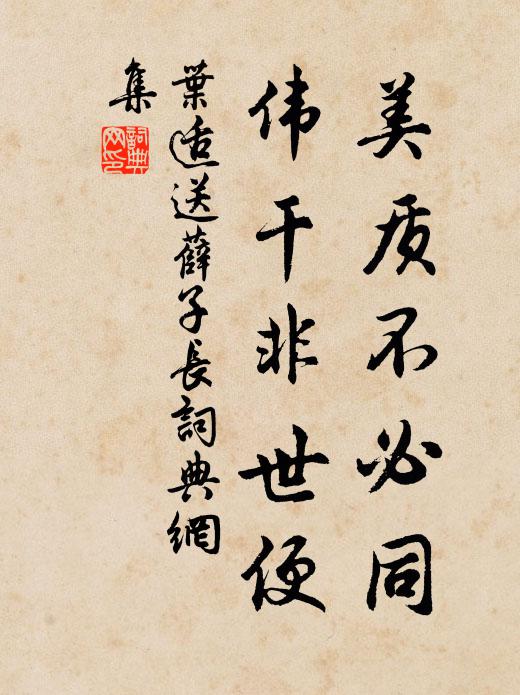 美质不必同
伟干非世便
葉适送薛子長詞典網
集
詞典網印